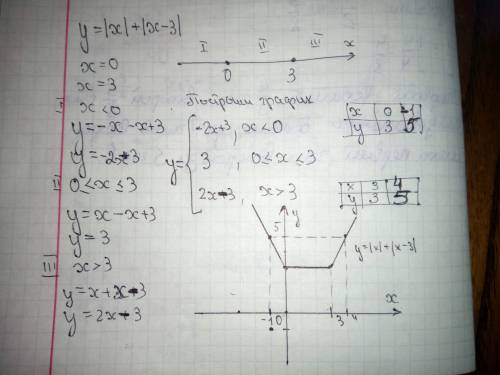 y=|x|+|x-3|
I II III x
0 3
x=0
x=3
I x<0
y=-x-x+3
y=-2x+3
II 0≤x≤3
y=x-x+3
y=3
III x>3
y=x+x-3
y=2x-3
Построим график
y= { -2x+3, x<0
3, 0≤x≤3
2x-3, x>3
x 0 -1
y 3 5
x 3 4
y 3 5
y
5
y=|x|+|x-3|
x
-1 0 3 4